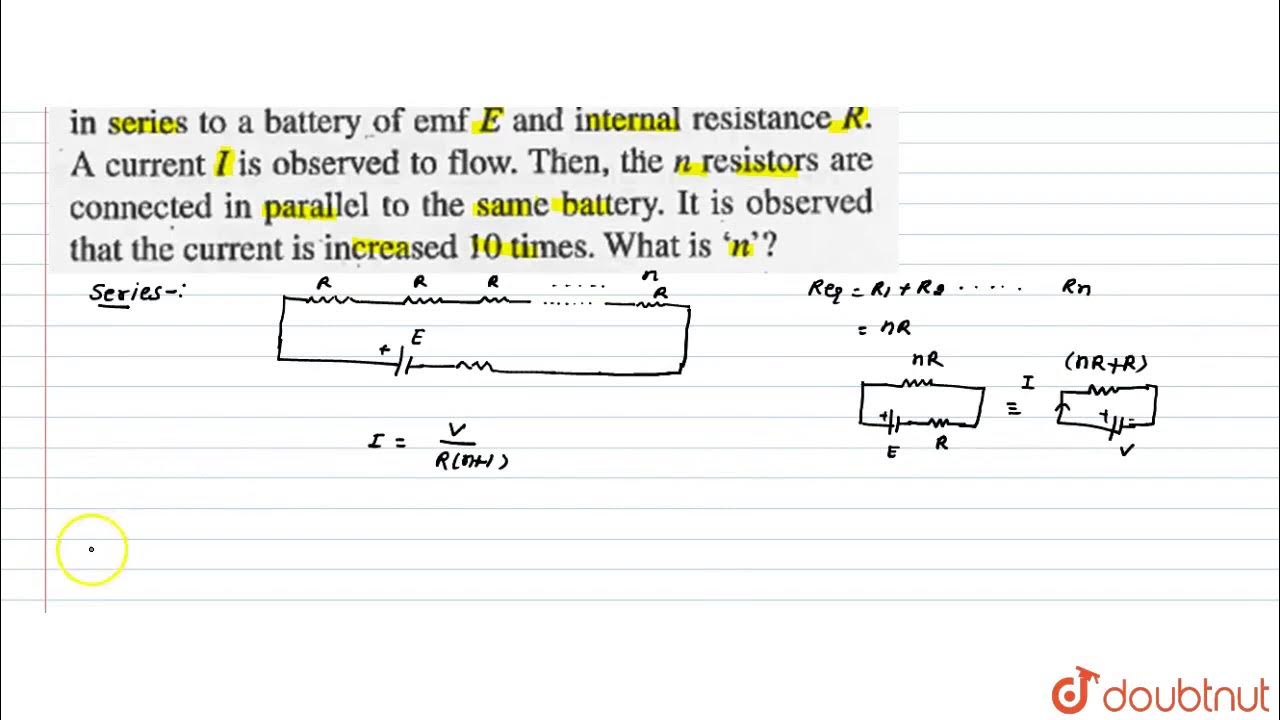 in series to a battery of emf E and internal resistance R.
A current I is observed to flow. Then, the n resistors are
connected in parallel to the same battery. It is observed
that the current is increased 10 times. What is ‘n’?
Series-:
R R R ..... n
R
.......
+ E
I = V
R(n+1)
Req = R1 + R2 ..... Rn
= nR
nR
+
E R
≡
I
(nR+R)
+ =
V
doubtnut